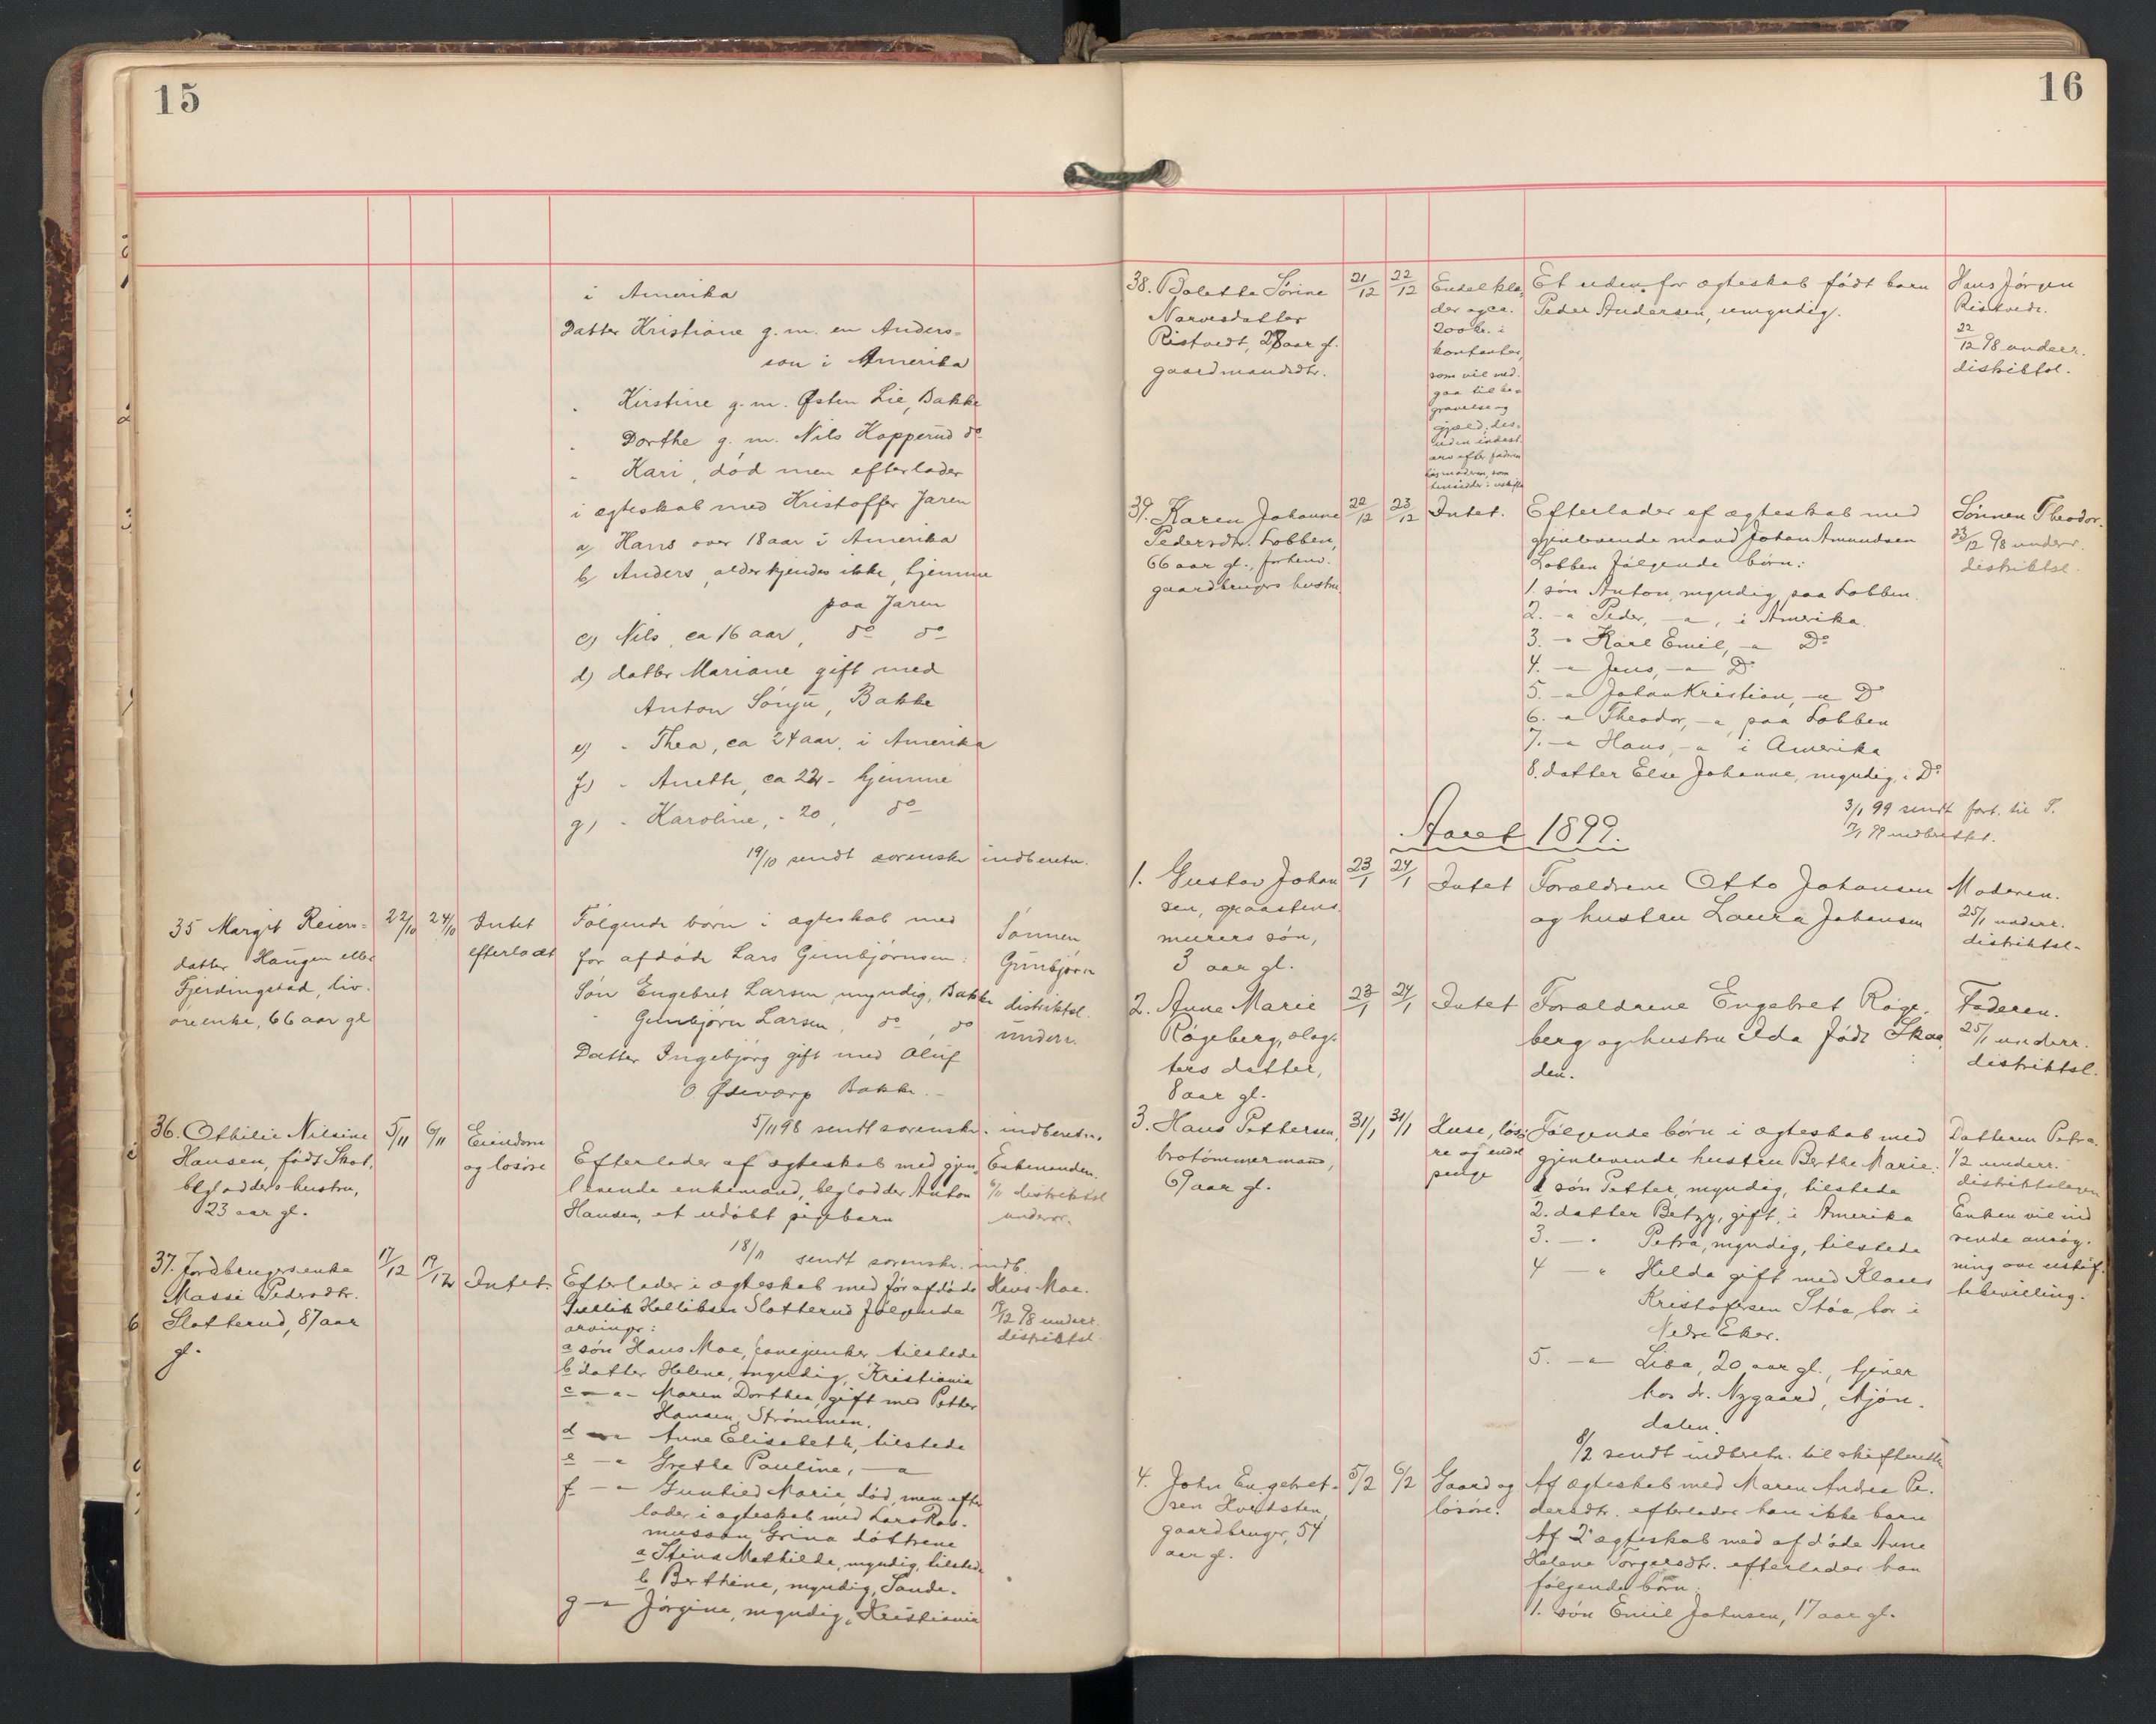 15
i Amerika
Datter Kristiane g. m. en Anders-
son i Amerika
" Kirstine g. m. Østen Lie, Bakke
" Dorthe g. m. Nils Hopperud do
" Kari, død men efterlader
i ægteskab med Kristoffer Jaren
a) Hans over 18 aar i Amerika
b) Anders, alder kjendes ikke, hjemme
paa Jaren
c) Nils, ca 16 aar, do do
d) datter Mariane gift med
Anton , Bakke
e) " Thea, ca 24 aar, i Amerika
f) " Aneth, ca 22 - hjemme
g) " Karoline, - 20, do
19/10 sendt sorenskr indberetn.
35 Margit Reiers-
datter Haugen eller
Fjerdingstad, liv-
øreenke, 66 aar gl
22/10
24/10
Intet
efterladt
Følgende børn i ægteskab med
før afdøde Lars Gunbjørnsen:
Søn Engebret Larsen, myndig, Bakke
" Gunbjørn Larsen, do, do
Datter Ingebjørg gift med Oluf
O Bakke.-
5/11 98 sendt sorenskr. indberetn.
Sønnen
Gunbjørn
distriktsl.
underr.
36. Othilie Nilsine
Hansen, født Skot,
hustru,
23 aar gl.
5/11
6/11
Eiendom
og løsøre
Efterlader af ægteskab med gjen-
levende enkemand, Anton
Hansen, et udøbt pigebarn
18/11 sendt sorenskr. indb.
Enkemanden.
6/11 distriktsl
underr.
37. Jordbrugersenke
Massi Pedersdtr.
Slotterud, 87 aar
gl.
17/12
19/12
Intet.
Efterlader i ægteskab med før afdøde
Gullik Slotterud følgende
arvinger:
a søn Hans Moe, tilstede
b datter Helene, myndig, Kristiania
c - " - Maren Dorthea, gift med Petter
Hansen, Strømmen.
d - " Anne Elisabeth, tilstede
e - " Grethe Pauline, - "
f - " Gunhild Marie, død, men efter
lader i ægteskab med Lars Ras-
mussen Grina døttrene
a Stina Mathilde, myndig, tilstede
b Berthine, myndig, Sande.
g - " Jørgine, myndig, Kristiania
Hans Moe.
19/12 98 underr.
distriktsl
16
38. Bolette Sørine
Narvesdatter
Ristvedt, 28 aar gl.
gaardmandsdtr.
21/12
22/12
Endel klæ-
der og ca.
200 kr. i
kontanter,
som vil med-
gaa til be-
gravelse og
gjæld, des-
uden indest.
arv efter faderen
hos moderen, som
hensidder i uskifte
Et uden for ægteskab født barn
Peder Andersen, umyndig.
Hans Jørgen
Ristvedt.
22/12 98 underr.
distriktsl.
39. Karen Johanne
Pedersdtr. Lobben,
66 aar gl., forhenv.
gaardbrugers hustru
22/12
23/12
Intet.
Efterlader af ægteskab med
gjenlevende mand Johan Amundsen
Lobben følgende børn:
1. søn Anton, myndig, paa Lobben.
2. - " Peder, - ", i Amerika.
3. - " Karl Emil, - " Do
4. - " Jens, - " Do
5. - " Johan Kristian, - " Do
6. - " Theodor, - ", paa Lobben
7. - " Hans, - " i Amerika
8. datter Else Johanne, myndig, i Do
3/1 99 sendt fort. til S.
Sønnen Theodor.
23/12 98 underr.
distriktsl.
Aaret 1899.
1. Gustav Johan
sen, graastens-
murers søn,
3 aar gl.
23/1
24/1
Intet
Forældrene Otto Johansen
og hustru Laura Johansen
Moderen.
25/1 underr.
distriktsl-
2. Anne Marie
Røgeberg, slag-
ters datter,
8 aar gl.
23/1
24/1
Intet
Forældrene Engebret Røge-
berg og hustru Ida født Skaa-
den.
Faderen.
25/1 underr.
distriktsl.
3. Hans Pettersen,
brotømmermand,
69 aar gl.
31/1
31/1
Huse, løsø-
re og endel
penge
Følgende børn i ægteskab med
gjenlevende hustru Berthe Marie:
1 søn Petter, myndig, tilstede
2. datter Betzy, gift, i Amerika
3. - " Petra, myndig, tilstede
4 - " Hilda gift med Klaus
Kristofersen Støa, bor i
Nedre Eker.
5. - " Lisa, 20 aar gl., tjener
hos dr. Nygaard, Mjøn-
dalen.
8/2 sendt indbretn. til skifteretten
Datteren Petra.
1/2 underr.
distriktslægen
Enken vil ind
sende ansøg-
ning om uskif-
tebevilling.
4. John Engebret-
sen Hvedsten,
gaardbruger, 54
aar gl.
5/2
6/2
Gaard og
løsøre.
Af ægteskab med Maren Andrea Pe-
dersdtr. efterlader han ikke barn
Af 2' ægteskab med afdøde Anne
Helene Torgersdtr. efterlader han
følgende børn:
1. søn Emil Johnsen, 17 aar gl.